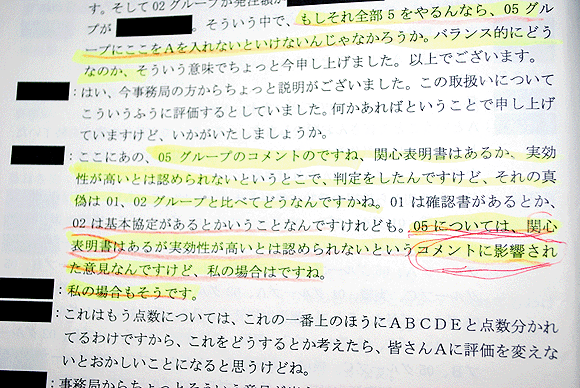 す。そして02グループが発注額が
が          。そういう中で、もしそれ全部5をやるんなら、05グル
ープにここをAを入れないといけないんじゃなかろうか。バランス的にどう
なのか、そういう意味でちょっと今申し上げました。以上でございます。
：はい、今事務局の方からちょっと説明がございました。この取扱いについて
こういうふうに評価するとしていました。何かあればということで申し上げ
ていますけど、いかがいたしましょうか。
：ここにあの、05グループのコメントのですね、関心表明書はあるか、実効
性が高いとは認められないというとこで、判定をしたんですけど、その真
偽は01、02グループと比べてどうなんですかね。01は確認書があるとか、
02は基本協定があるとかいうことなんですけれども。05については、関心
表明書はあるが実効性が高いとは認められないというコメントに影響され
た意見なんですけど、私の場合はですね。
：私の場合もそうです。
：これはもう点数については、これの一番上のほうにABCDEと点数分かれ
てるわけですから、これをどうするとか考えたら、皆さんAに評価を変えな
いとおかしいことになると思うけどね。
：事務局からちょっとそういう意見が